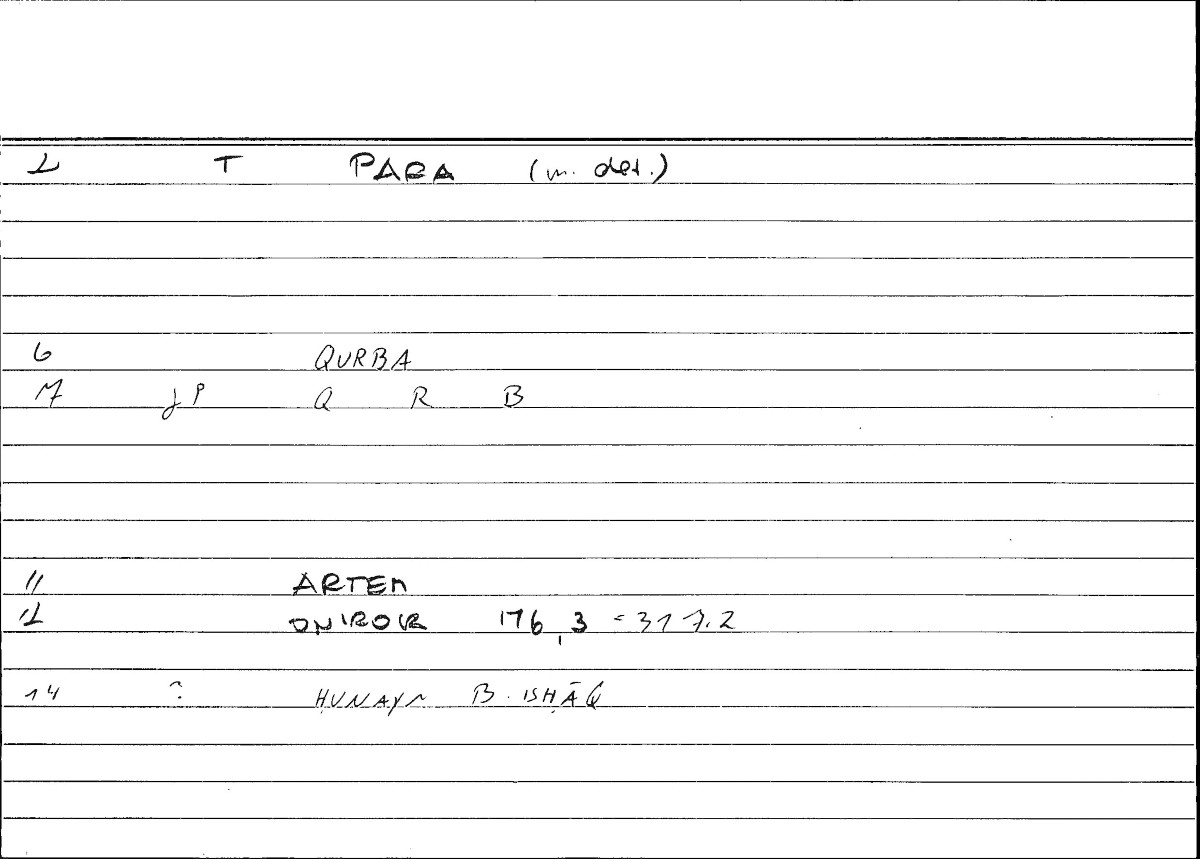 1 T PARA (m. det.)
6 QURBA
7 jP Q R B
11 ARTEM
12 ONIROCR 176,3 = 317.2
14 ? ḤUNAYN B. ISḤĀQ